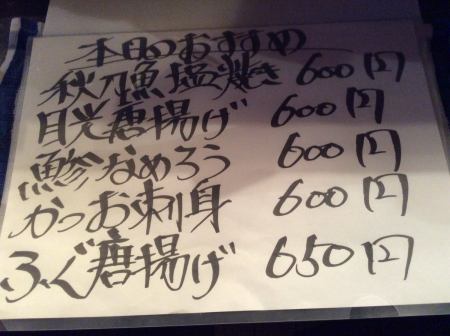 本日のおすすめ
秋刀魚塩焼き 600円
目光唐揚げ 600円
鯵なめろう 600円
かつお刺身 600円
ふぐ唐揚げ 650円